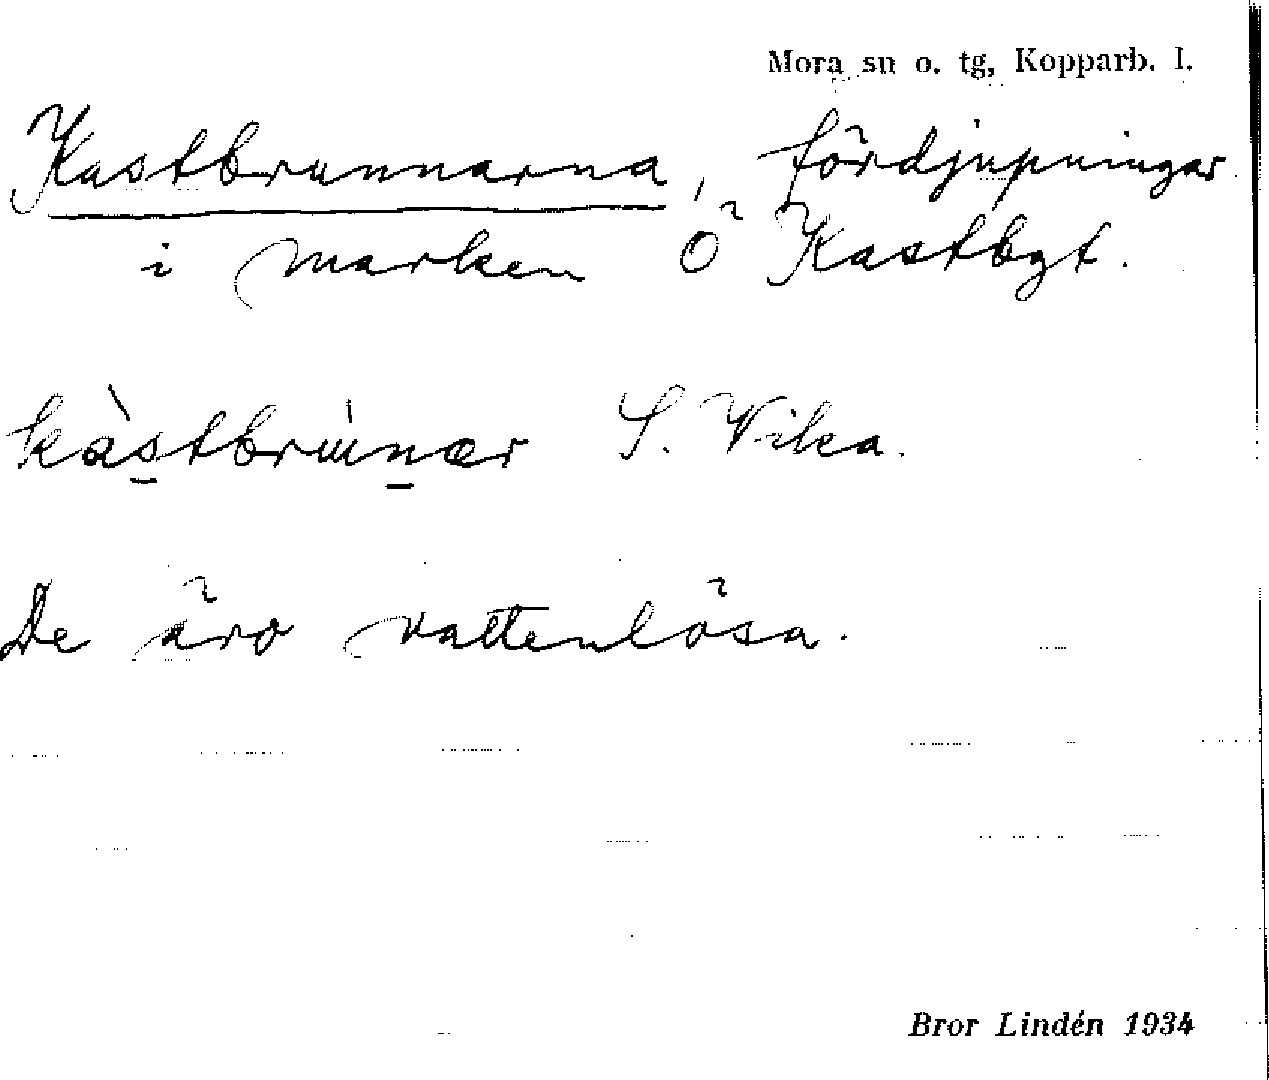 Mora sn o. tg, Kopparb. l.
Kastbrunnarna, fördjupningar
i marken Ö Kastbgt.
kàstbrúnær S. Vika.
De äro vattenlösa.
Bror Lindén 1934